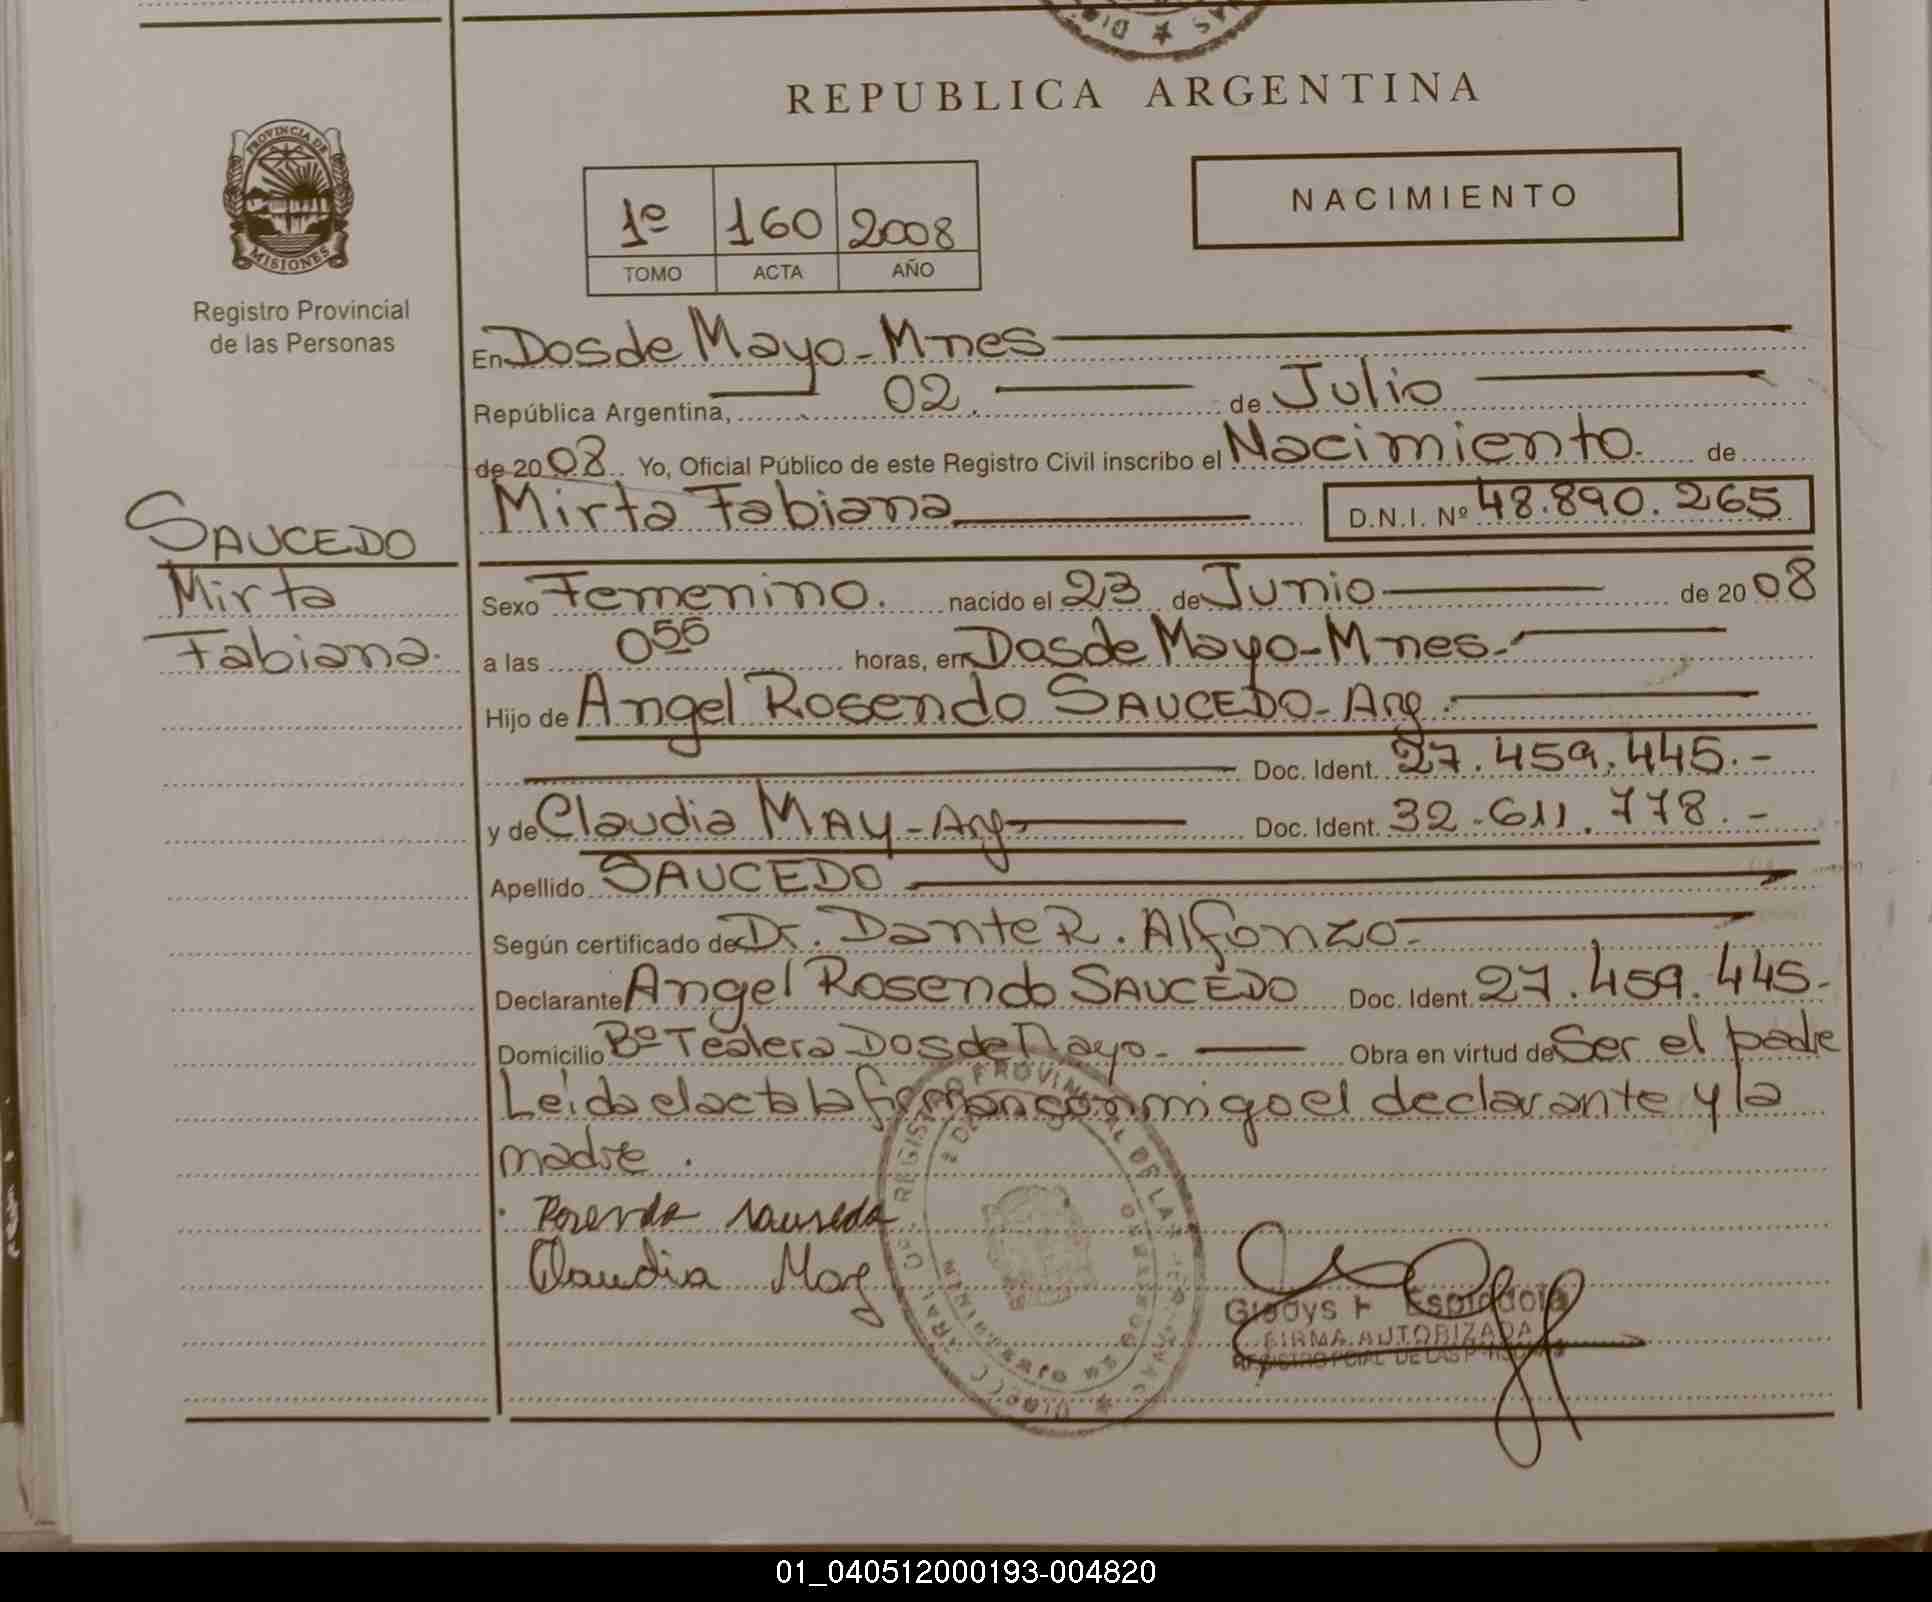 REPUBLICA ARGENTINA
PROVINCIA DE
MISIONES
Registro Provincial
de las Personas
1º 160 2008
TOMO ACTA AÑO
NACIMIENTO
En Dos de Mayo - Mnes
República Argentina, 02 de Julio
de 2008 Yo, Oficial Público de este Registro Civil inscribo el Nacimiento de
Mirta Fabiana D.N.I. Nº 48.890.265
SAUCEDO
Mirta
Fabiana.
Sexo Femenino. nacido el 23 de Junio de 2008
a las 0 56 horas, en Dos de Mayo - Mnes.
Hijo de Angel Rosendo SAUCEDO - Arg.
Doc. Ident. 27.459.445.-
y de Claudia MAY - Arg Doc. Ident. 32.611.778.-
Apellido SAUCEDO
Según certificado de Dr. Dante R. Alfonzo.
Declarante Angel Rosendo SAUCEDO Doc. Ident. 27.459.445.-
Domicilio Bº Tealera Dos de Mayo. Obra en virtud de Ser el padre
Leída el acta la firman conmigo el declarante y la
madre.
Claudia May
Gladys Espindola
FIRMA AUTORIZADA
REGISTRO PCIAL DE LAS
01_040512000193-004820